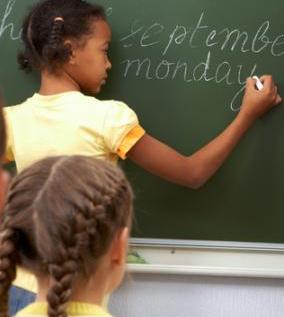 septembe
monday